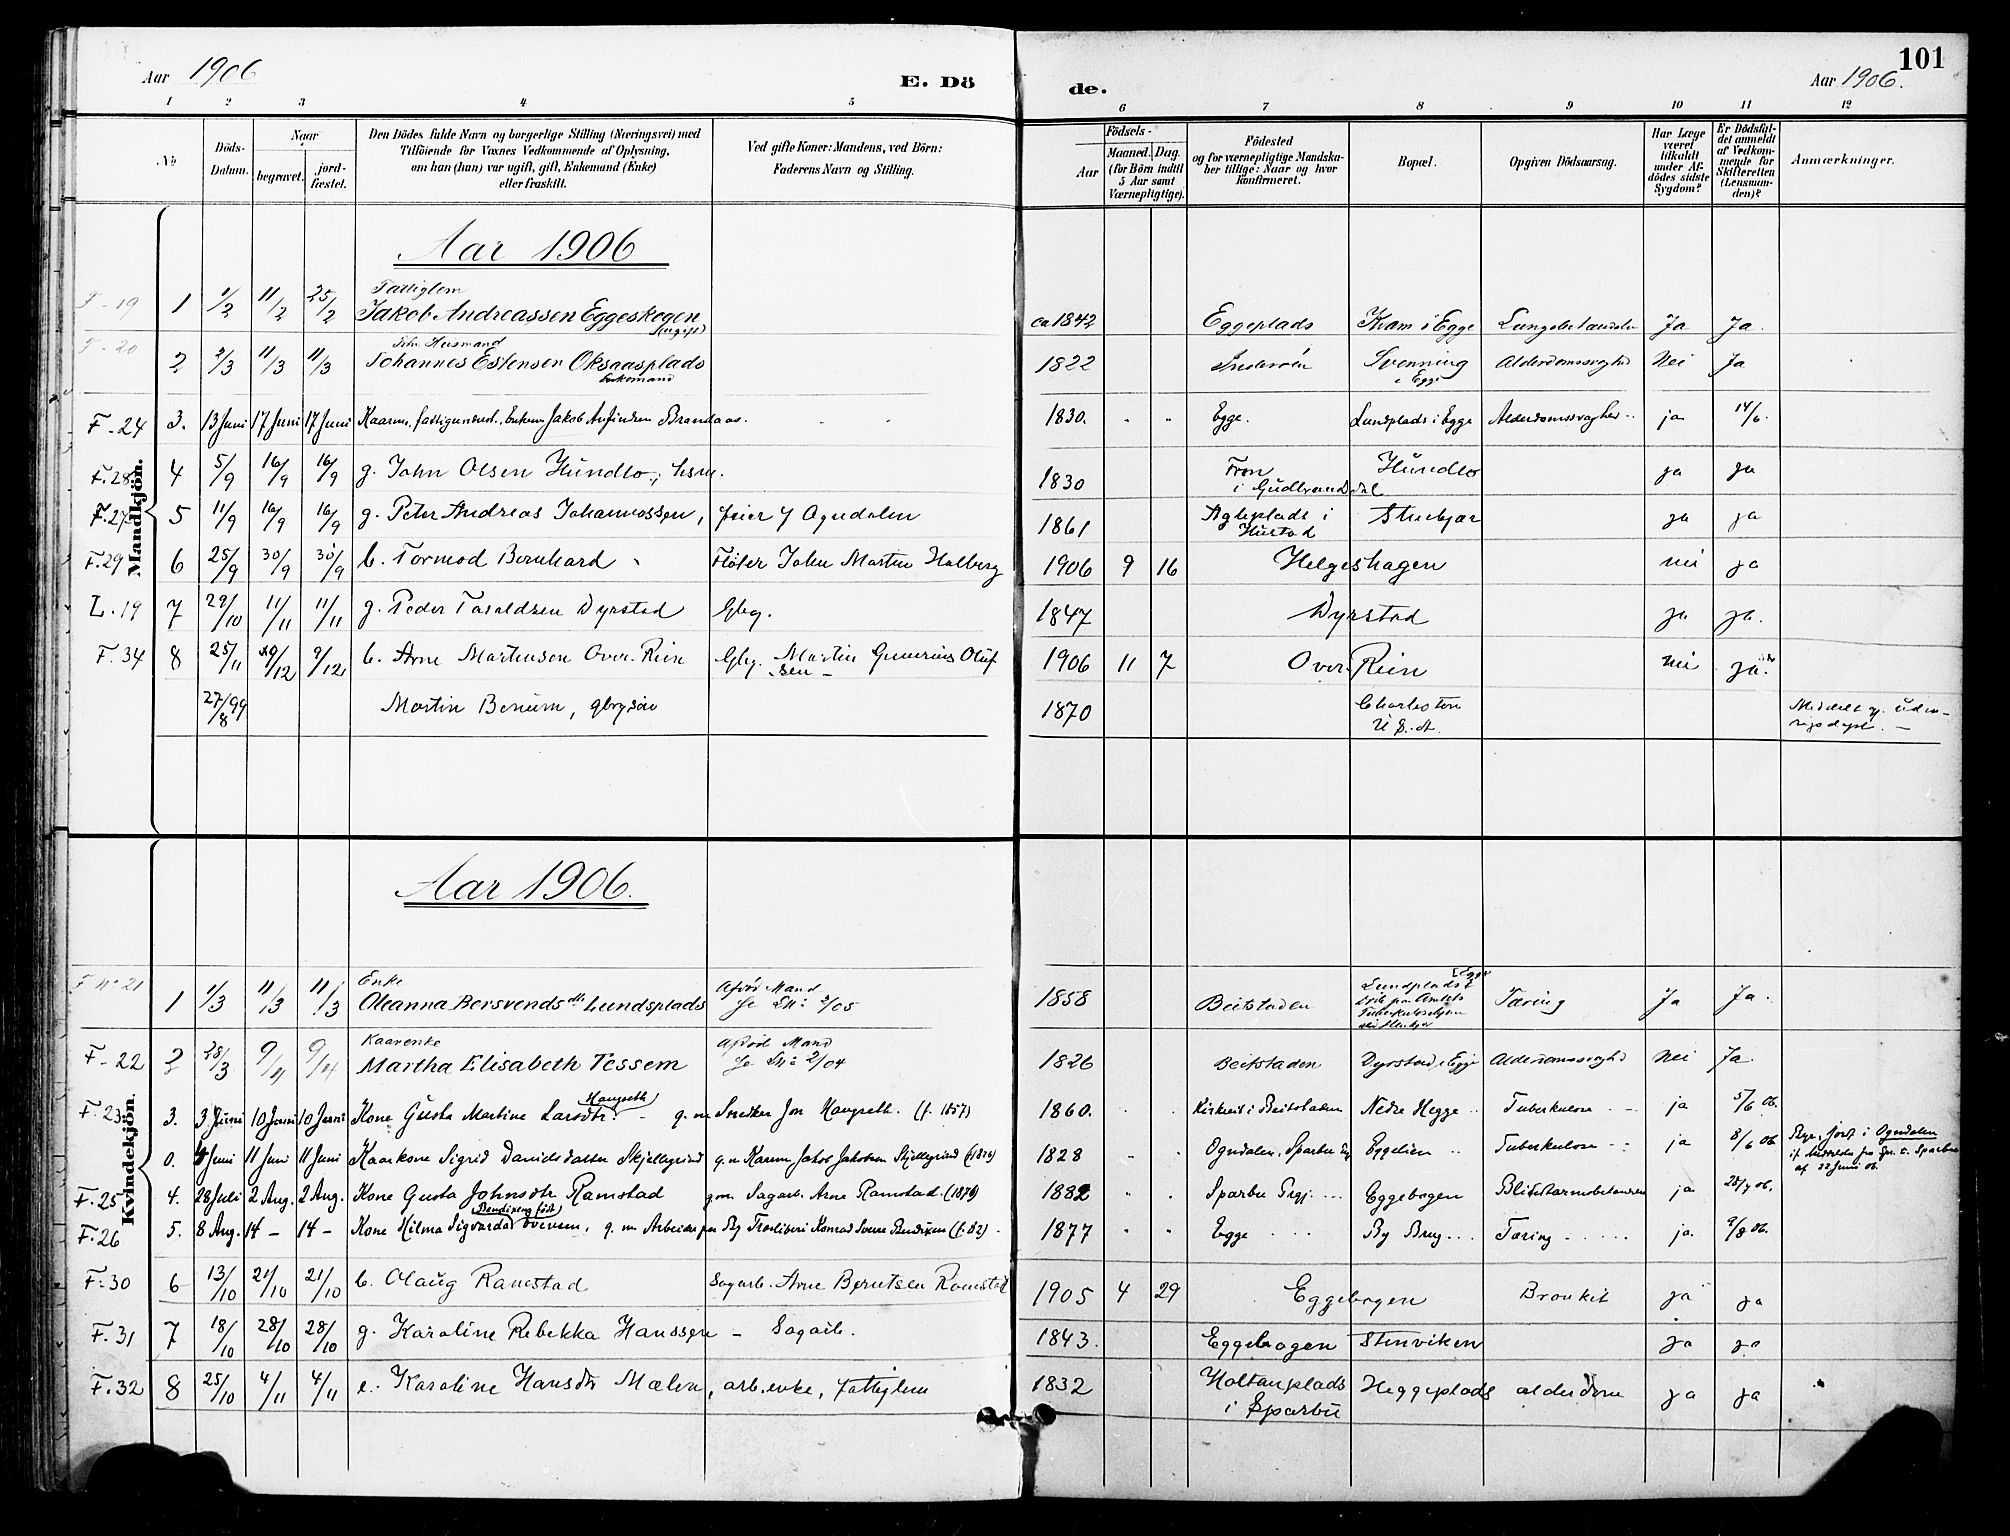 Aar 1906
E. Dö
de.
Aar 1906.
101
1 2 3 4 5 6 7 8 9 10 11 12
No
Döds-
Datum.
Naar
begravet.
jord-
fæstet.
Den Dödes fulde Navn og borgerlige Stilling (Næringsvei) med
Tilföiende for Voxnes Vedkommende af Oplysning,
om han (hun) var ugift, gift, Enkemand (Enke)
eller fraskilt.
Ved gifte Koner: Mandens, ved Börn:
Faderens Navn og Stilling.
Födsels-
Aar
Maaned. Dag.
(for Börn indtil
5 Aar samt
Værnepligtige).
Födested
og for værnepligtige Mandska-
ber tillige: Naar og hvor
konfirmeret.
Bopæl.
Opgiven Dödsaarsag.
Har Læge
været
tilkaldt
under Af-
dödes sidste
Sygdom?
Er Dödsfal-
det anmeldt
af Vedkom-
mende for
Skifteretten
(Lensman-
den)?
Anmærkninger.
Mandkjön.
Aar 1906
Fattiglem
F-19 1 1/2 11/2 25/2 Jakob Andreassen Eggeskogen ca 1842 Eggeplads Kvam i Egge Ja Ja.
(ugift)
Husmand
F-20 2 2/3 11/3 11/3 Johannes Estensen Oksaasplads 1822 Svenning Nei Ja
Enkemand i Egge
F-24 3. 13 Juni 17 Juni 17 Juni Jakob 1830. Egge. Lundplads i Egge ja 14/6.
F.28 4 5/9 16/9 16/9 g. John Olsen Hundlo, hsm. 1830 Fron Hundlo ja ja
i Gudbrandsdal
F.27 5 11/9 16/9 16/9 g. Peter Andreas Johannessen, feier i Ogndalen 1861 plads i Stenkjær ja ja
Hustad
F.29 6 25/9 30/9 30/9 b. Tormod Bernhard Fløter John Martin Halberg 1906 9 16 Helgeshagen nei ja
L.19 7 29/10 11/11 11/11 g. Peder Taraldsen Dyrstad Gbg. 1847 Dyrstad ja ja.
F.34 8 25/11 9/12 9/12 b. Arne Martensen Over-Rein Gbg. Martin Gunerius Oluf 1906 11 7 Over-Rein nei ja.
sen -
27/8 99 Martin Benum, gbrsøn 1870 Charleston Meddelt
U.S.A.
Kvindekjön.
Aar 1906.
Enke
F No 21 1 1/3 11/3 11/3 Oleanna Bersvendsdtr Lundsplads 1858 Beitstaden Tæring Ja Ja.
Mand
Lundsplads i Egge
Kaarenke
F-22 2 28/3 9/4 9/4 Martha Elisabeth Tessem 1826 Beitstaden Dyrstad i Egge Nei Ja.
Mand
F.23 3. 3 Juni 10 Juni 10 Juni Kone Gusta Martine Larsdtr. g. m Snedker Jon Haugseth. (f. 1857) 1860. Kirkeit i Beitstaden Nedre Hegge Tuberkulose ja 5/6 06.
Haugseth
0. 11 Juni 11 Juni Kaarkone Sigrid Danielsdatter Skjellegrind g. m Kaarm. Jakob Jakobsen Skjellegrind (f. 1826) 1828 Ogndalen, Sparbu Eggelien Tuberkulose ja 8/6 06 Ogndalen
F.25 4. 28 Juli 2 Aug. 2 Aug. Kone Gusta Johnsdtr Ramstad g. m. Sagarb. Arne Ramstad. 1882 Sparbu Prgj. Eggebogen ja 28/7 06.
F.26 5. 8 Aug. 14 - 14 - Kone Hilma g. m Arbeider By Træsliberi 1877 Egge By Brug Tæring ja. 9/8 06.
F.30 6 13/10 21/10 21/10 b. Olaug Ramstad Sagarb. Arne Berntsen Ramstad 1905 4 29 Eggebogen Bronkit ja ja
F.31 7 18/10 28/10 28/10 g. Karoline Rebekka Hanssen - Sagarb. 1843. Eggebogen Stenviken ja ja
F.32 8 25/10 4/11 4/11 e. Karoline Hansdtr Mælen, arb.enke, fattiglem 1832 Holtanplads Heggeplads alderdom ja ja
i Sparbu